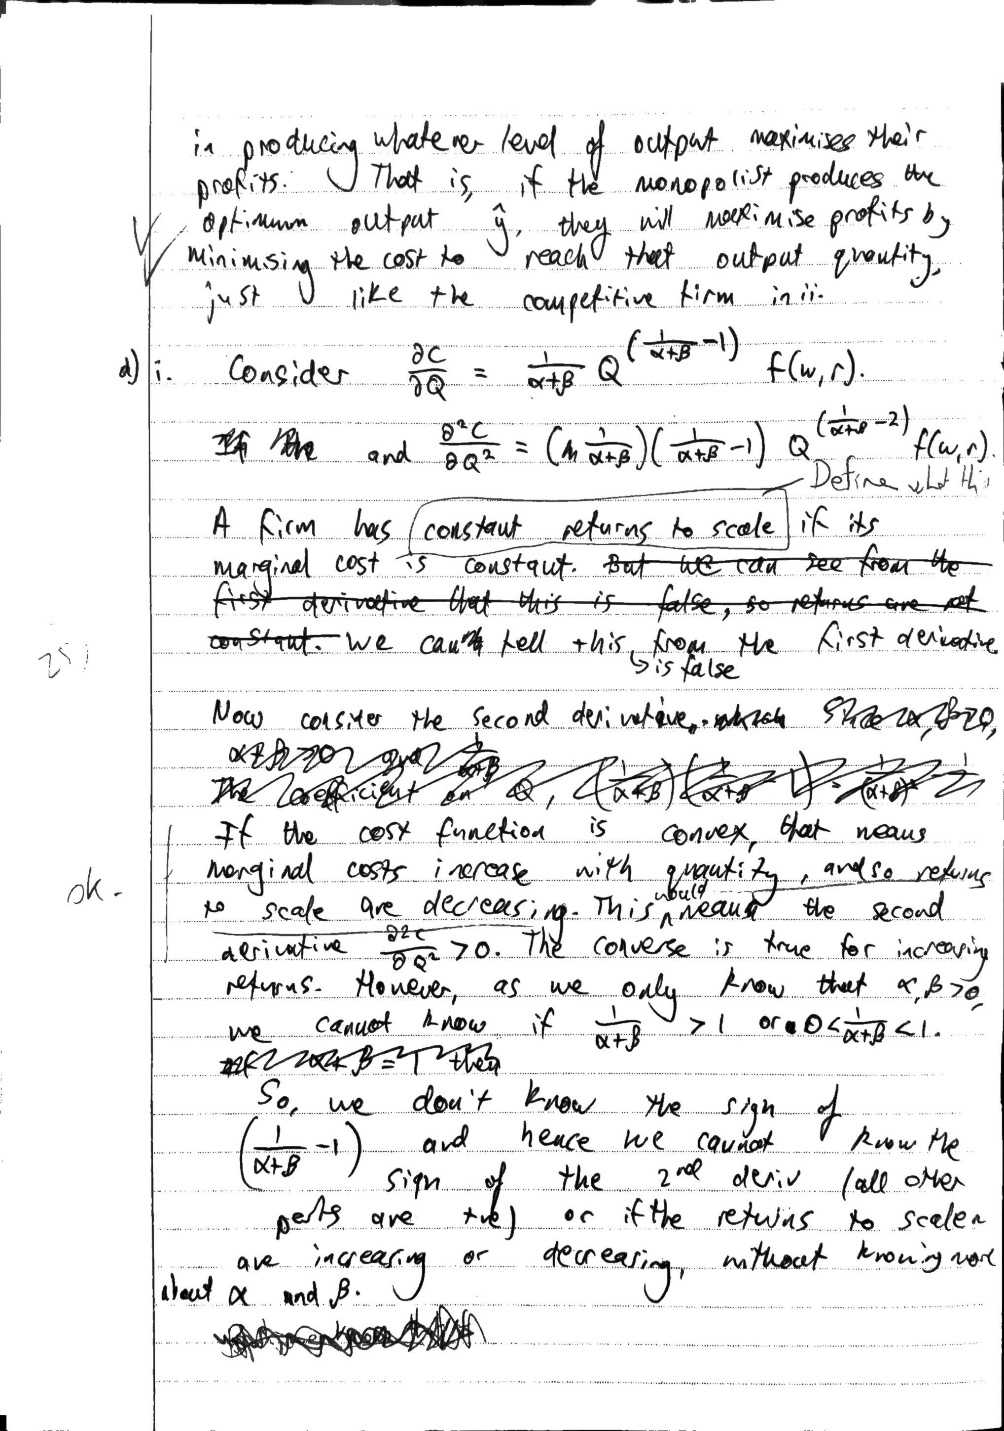 in producing whatever level of output maximises their
profits. That is, if the monopolist produces the
optimum output ŷ, they will maximise profits by
minimising the cost to reach that output quantity,
just like the competitive firm in ii.
d) i. Consider ∂C/∂Q = 1/(α+β) Q^(1/(α+β) -1) f(w,r).
and ∂²C/∂Q² = (1/(α+β))(1/(α+β) -1) Q^(1/(α+β) -2) f(w,r).
Define what this
A firm has constant returns to scale if its
marginal cost is constant. But we can see from the
first derivative that this is false, so returns are not
constant. We can tell this from the first derivative
↳ is false
25)
Now consider the second derivative.
If the cost function is convex, that means
marginal costs increase with quantity, and so returns
ok.
to scale are decreasing. This would mean the second
derivative ∂²C/∂Q² >0. The converse is true for increasing
returns. However, as we only know that α,β>0,
we cannot know if 1/(α+β) >1 or 0<1/(α+β)<1.
So, we don't know the sign of
(1/(α+β) -1) and hence we cannot know the
sign of the 2nd deriv (all other
parts are +ve) or if the returns to scale
are increasing or decreasing, without knowing more
about α and β.